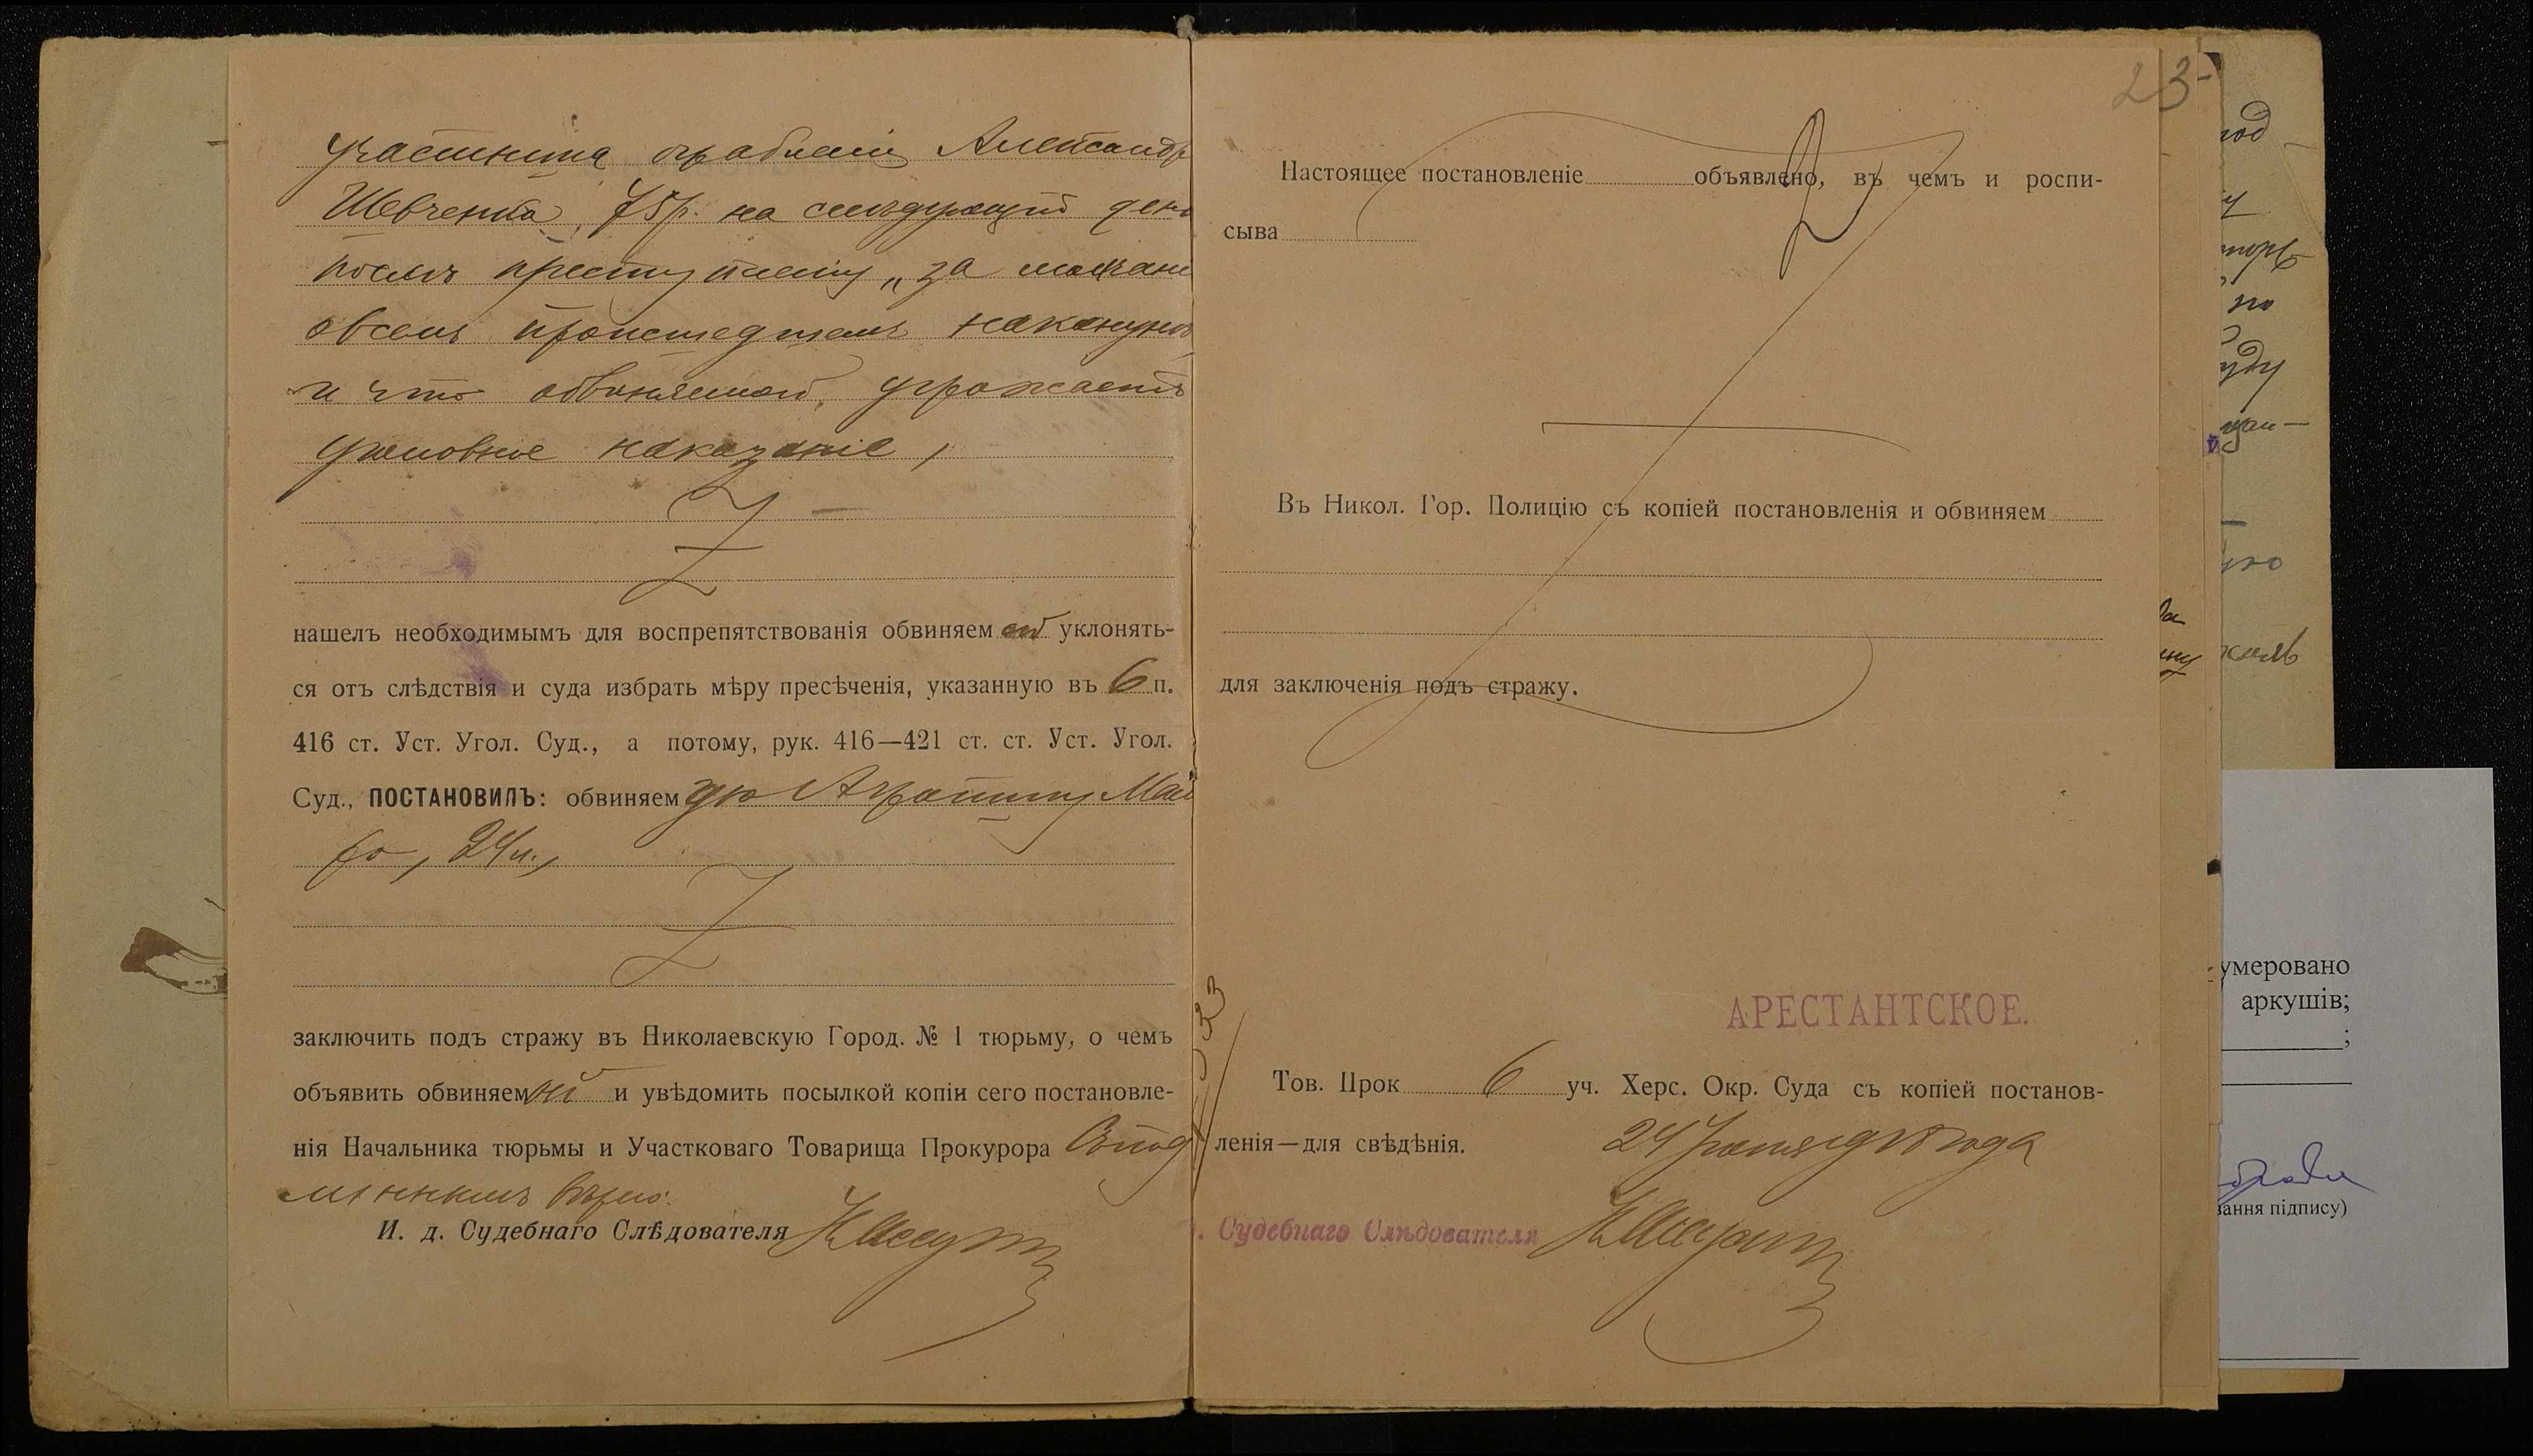 участника ограбленiя Александр
Шевченка 75 р. на слѣдующiй день
послѣ преступленiя „за молчанi
о всемъ происшедшемъ наканунѣ
и что обвиняемой угрожаетъ
уголовное наказанiе,
нашелъ необходимымъ для воспрепятствованія обвиняемой уклонять-
ся отъ слѣдствія и суда избрать мѣру пресѣченія, указанную въ 6 п.
416 ст. Уст. Угол. Суд., а потому, рук. 416—421 ст. ст. Уст. Угол.
Суд., ПОСТАНОВИЛЪ: обвиняемую
24 л.,
заключить подъ стражу въ Николаевскую Город. № 1 тюрьму, о чемъ
объявить обвиняемой и увѣдомить посылкой копіи сего постановле-
нія Начальника тюрьмы и Участковаго Товарища Прокурора Съ под
линнымъ вѣрно:
И. д. Судебнаго Слѣдователя
23
Настоящее постановленіе объявлено, въ чемъ и роспи-
сыва
Въ Никол. Гор. Полицію съ копіей постановленія и обвиняем
для заключенія подъ стражу.
АРЕСТАНТСКОЕ.
Тов. Прок 6 уч. Херс. Окр. Суда съ копіей постанов-
ленія—для свѣдѣнія. 24 года
Судебнаго Слѣдователя
умеровано
аркушів;
;
ання підпису)